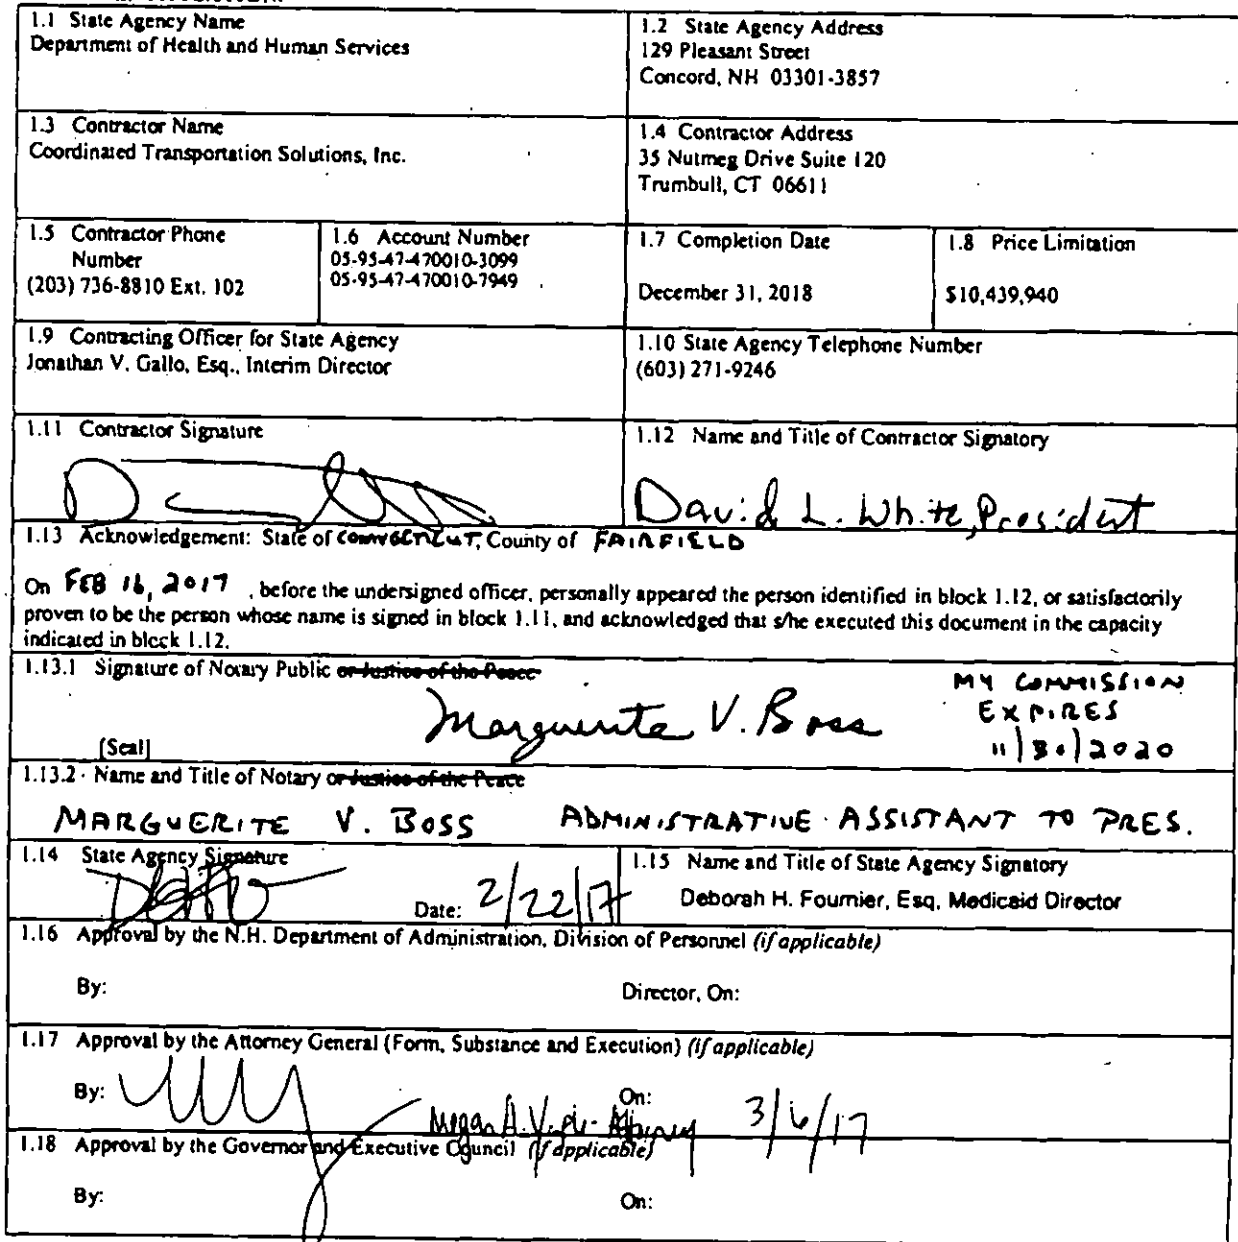 1.1 State Agency Name
Department of Health and Human Services
1.2 State Agency Address
129 Pleasant Street
Concord, NH 03301-3857
1.3 Contractor Name
Coordinated Transportation Solutions, Inc.
1.4 Contractor Address
35 Nutmeg Drive Suite 120
Trumbull, CT 06611
1.5 Contractor Phone
Number
(203) 736-8810 Ext. 102
1.6 Account Number
05-95-47-470010-3099
05-95-47-470010-7949
1.7 Completion Date
December 31, 2018
1.8 Price Limitation
$10,439,940
1.9 Contracting Officer for State Agency
Jonathan V. Gallo, Esq., Interim Director
1.10 State Agency Telephone Number
(603) 271-9246
1.11 Contractor Signature
1.12 Name and Title of Contractor Signatory
David L. White, President
1.13 Acknowledgement: State of CONNECTICUT, County of FAIRFIELD
On FEB 16, 2017, before the undersigned officer, personally appeared the person identified in block 1.12, or satisfactorily
proven to be the person whose name is signed in block 1.11, and acknowledged that s/he executed this document in the capacity
indicated in block 1.12.
1.13.1 Signature of Notary Public or Justice of the Peace
Marguerite V. Boss
MY COMMISSION
EXPIRES
11/30/2020
[Seal]
1.13.2 Name and Title of Notary or Justice of the Peace
MARGUERITE V. BOSS ADMINISTRATIVE ASSISTANT TO PRES.
1.14 State Agency Signature
Date: 2/22/17
1.15 Name and Title of State Agency Signatory
Deborah H. Fournier, Esq, Medicaid Director
1.16 Approval by the N.H. Department of Administration, Division of Personnel (if applicable)
By: Director, On:
1.17 Approval by the Attorney General (Form, Substance and Execution) (if applicable)
By: On:
Megan A. Attorney 3/6/17
1.18 Approval by the Governor and Executive Council (if applicable)
By: On: